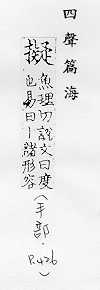 四聲篇海
擬
魚理切說文曰度
也易曰︱諸形容
(手部．
P.426)